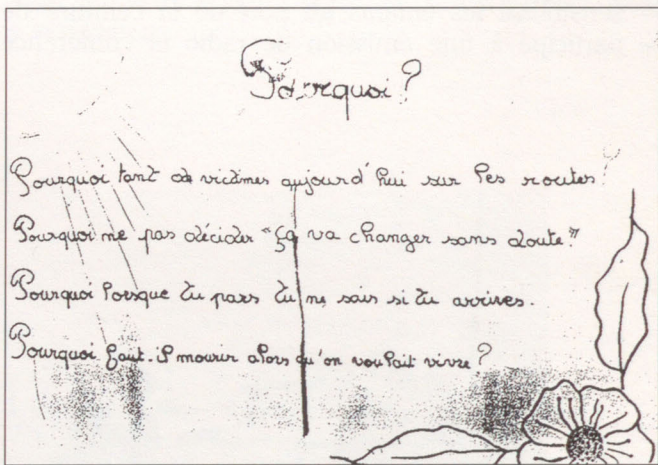 Pourquoi?
Pourquoi tant de victimes aujourd'hui sur les routes?
Pourquoi ne pas décider "ça va changer sans doute!"
Pourquoi lorsque tu pars tu ne sais si tu arrives.
Pourquoi faut-il mourir alors qu'on voulait vivre?